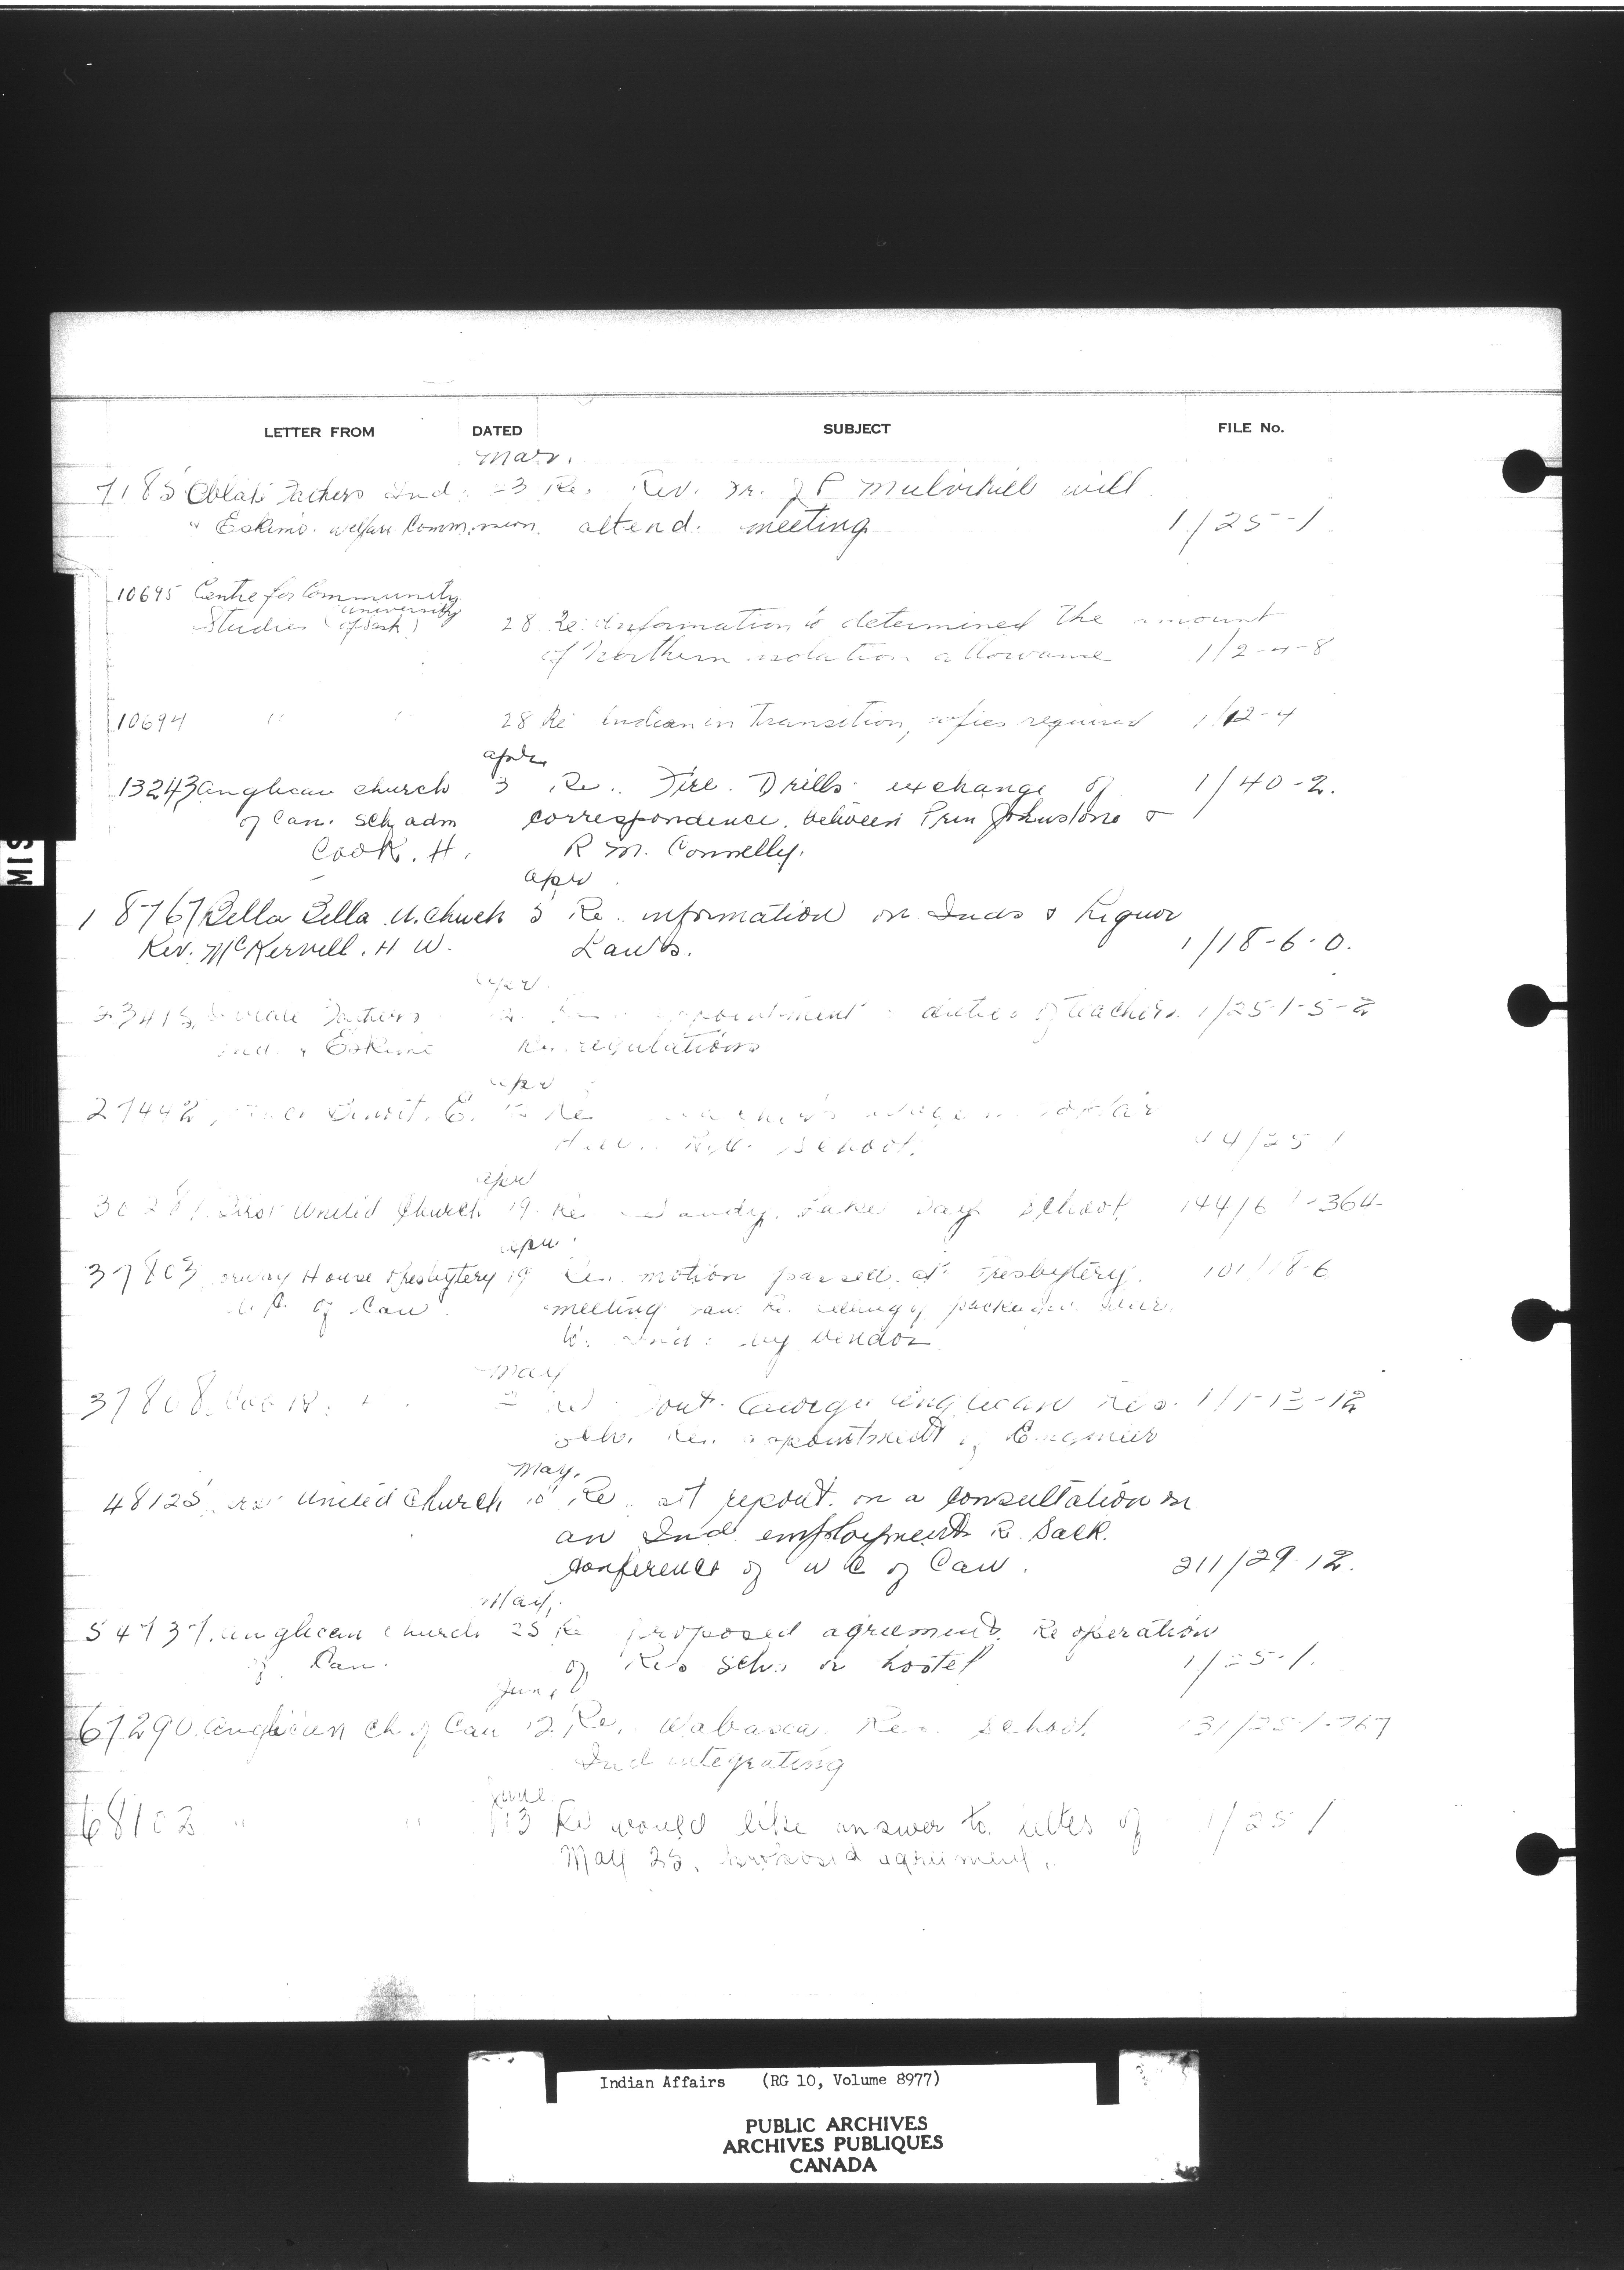 LETTER FROM DATED SUBJECT FILE No.
Mar.
7185 Oblate Fathers Ind. 23 Re. Rev. Fr. J P Mulvihill will
" Eskimo. Welfare Commission. attend. meeting 1/25-1
10695 Centre for Community
Studies (University of Sask) 28 Re: Information to determined the amount
of Northern isolation allowance 1/2-4-8
10694 " " 28 Re Indian in Transition, copies required 1/12-4
Apr.
13243 Anglican Church 3 Re. Fire. Drills. exchange of 1/40-2.
of Can. sch adm correspondence. between Prin Johnstone &
Cook. H. R M. Connelly.
Apr
18767 Bella Bella U. Church 5 Re. information on Inds & Liquor
Rev. McKervell. H W. Laws. 1/18-6-0.
Apr
23415 Fathers Re appointment duties of Teachers 1/25-1-5-2
Ind. & Eskimo Re. regulations
Apr
27442 Benoit. E. Re
School. 44/25-1
Apr
First United Church 19 Re Sandy. Lake Day School 144/6-1-364
Apr
37803 Norway House Presbytery 19 Re. motion passed. at Presbytery. 101/18-6
U. C. of Can. meeting Re. selling of packaged
to by vendor
May
37808 Cook. H. 2 Re Fort. George Anglican Res. 1/1-13-12
Re. appointment of Engineer
May.
48125 United Church Re. report. on a consultation on
an Ind employment R. Sask.
conference of U C of Can. 211/29-12.
May,
54737. Anglican Church 25 Re proposed agreements. Re operation
of Can. of Res Schs or hostel 1/25-1.
June
67290 Anglican Ch. of Can 12 Re. Wabasca Res. School. 131/25-1-767
Ind integrating
June
68102 " " 13 Re would like answer to letter of 1/25-1
May 25. proposed agreement.
MIS
Indian Affairs (RG 10, Volume 8977)
PUBLIC ARCHIVES
ARCHIVES PUBLIQUES
CANADA